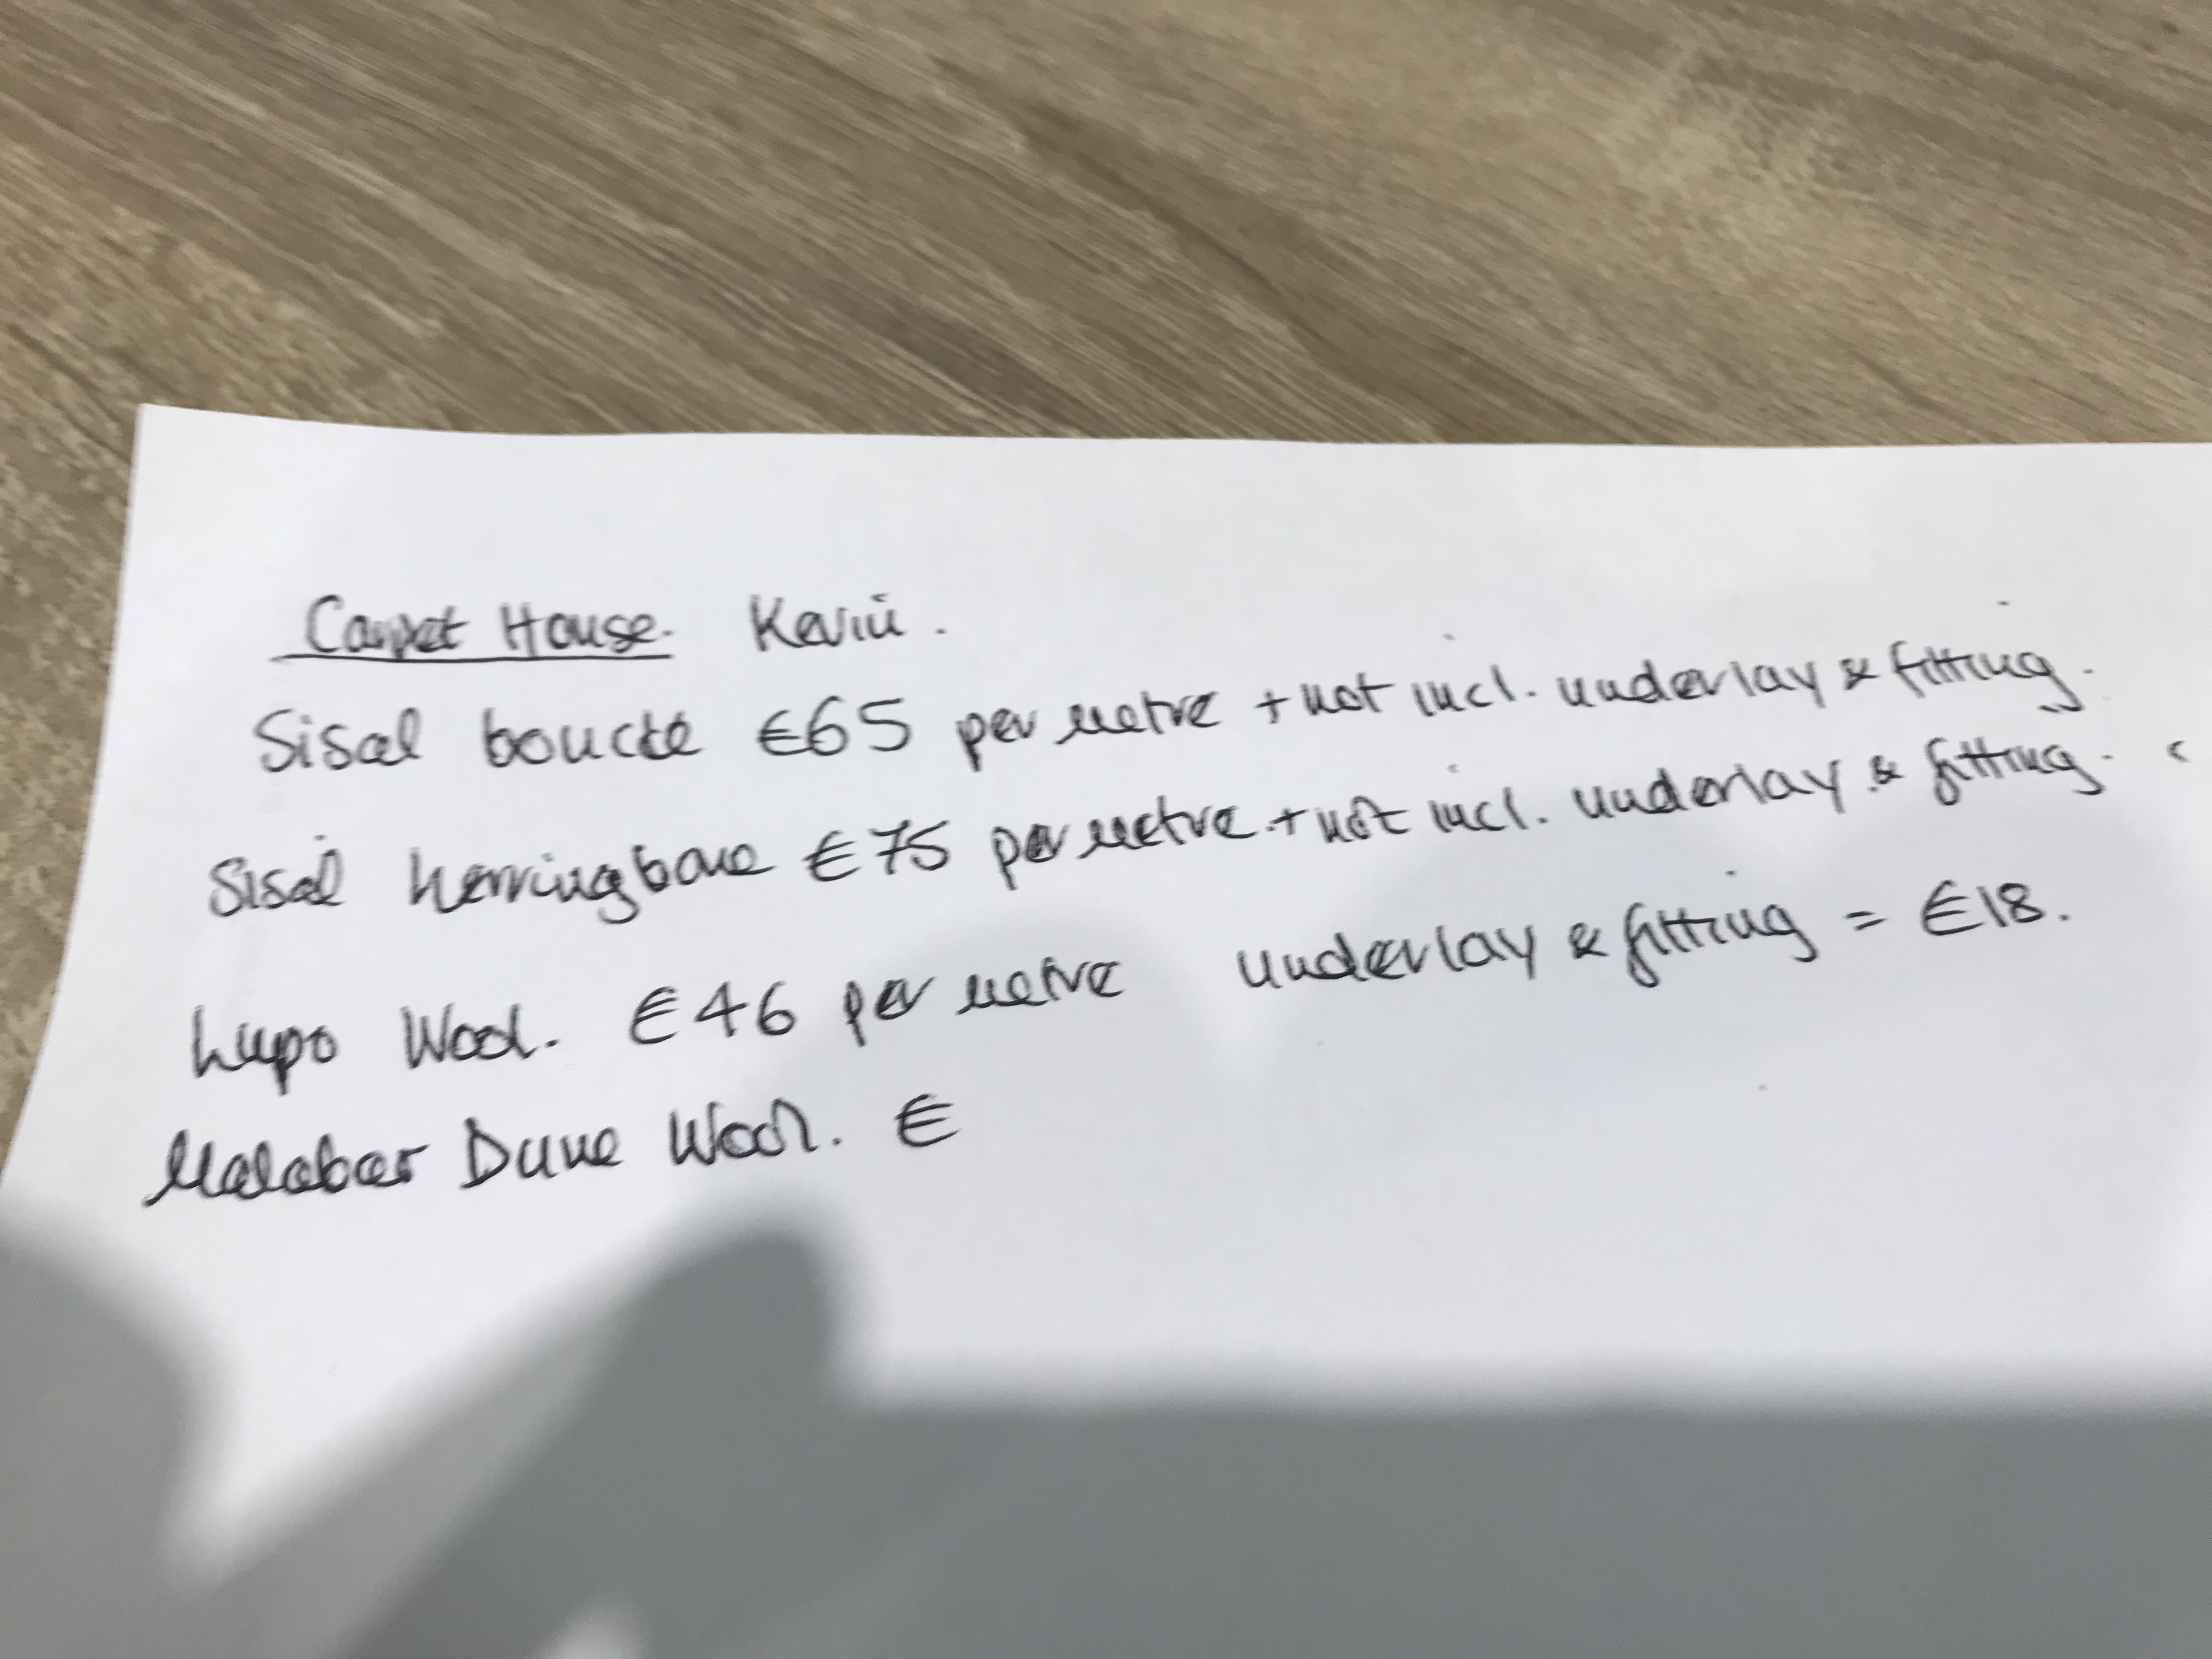 Carpet House. Kevin.
Sisal bouclé €65 per metre + not incl. underlay & fitting.
Sisal herringbone €75 per metre. + not incl. underlay & fitting.
Lupo Wool. €46 per metre underlay & fitting = €18.
Malabar Dune Wool. €